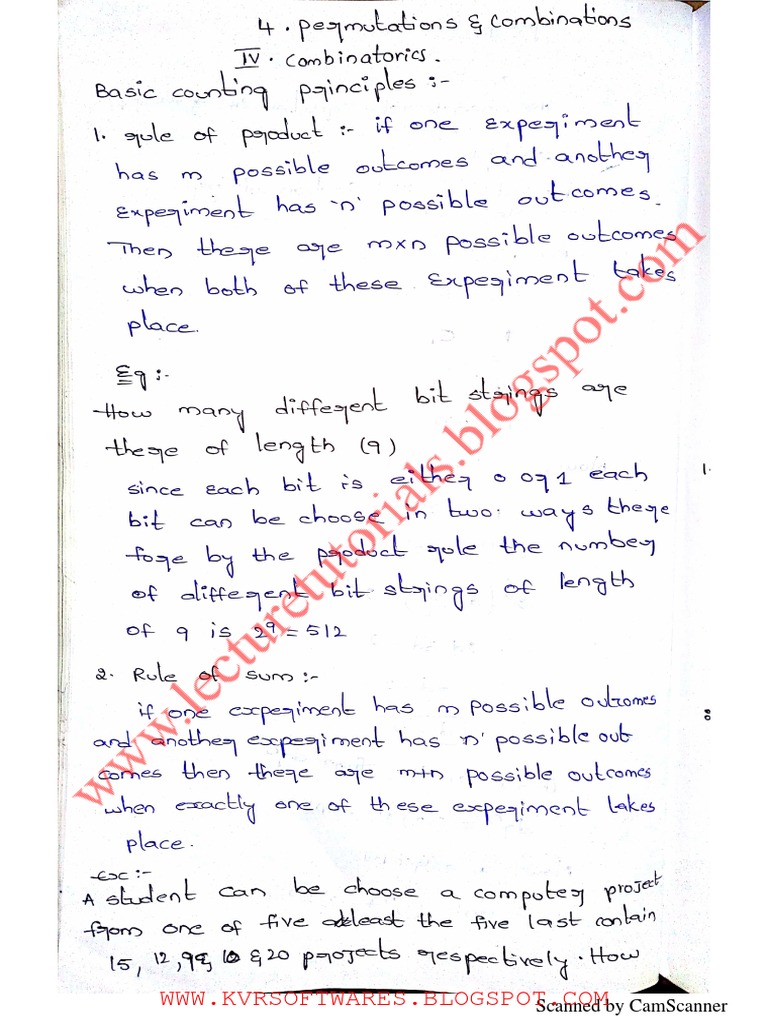 4. permutations & combinations
IV. combinatorics.
Basic counting principles :-
1. rule of product :- if one experiment
has m possible outcomes and another
experiment has 'n' possible outcomes.
Then there are m×n possible outcomes
when both of these experiment takes
place.
Eg :-
How many different bit strings are
there of length (9)
since each bit is either 0 or 1 each
bit can be choose in two ways there
fore by the product rule the number
of different bit strings of length
of 9 is 2⁹ = 512
2. Rule of sum :-
if one experiment has m possible outcomes
and another experiment has n' possible out
comes then there are m+n possible outcomes
when exactly one of these experiment takes
place.
Ex :-
A student can be choose a computer project
from one of five the five last contain
15, 12, 10 & 20 projects respectively. How
www.lecturetutorials.blogspot.com
WWW.KVRSOFTWARES.BLOGSPOT.COM
Scanned by CamScanner